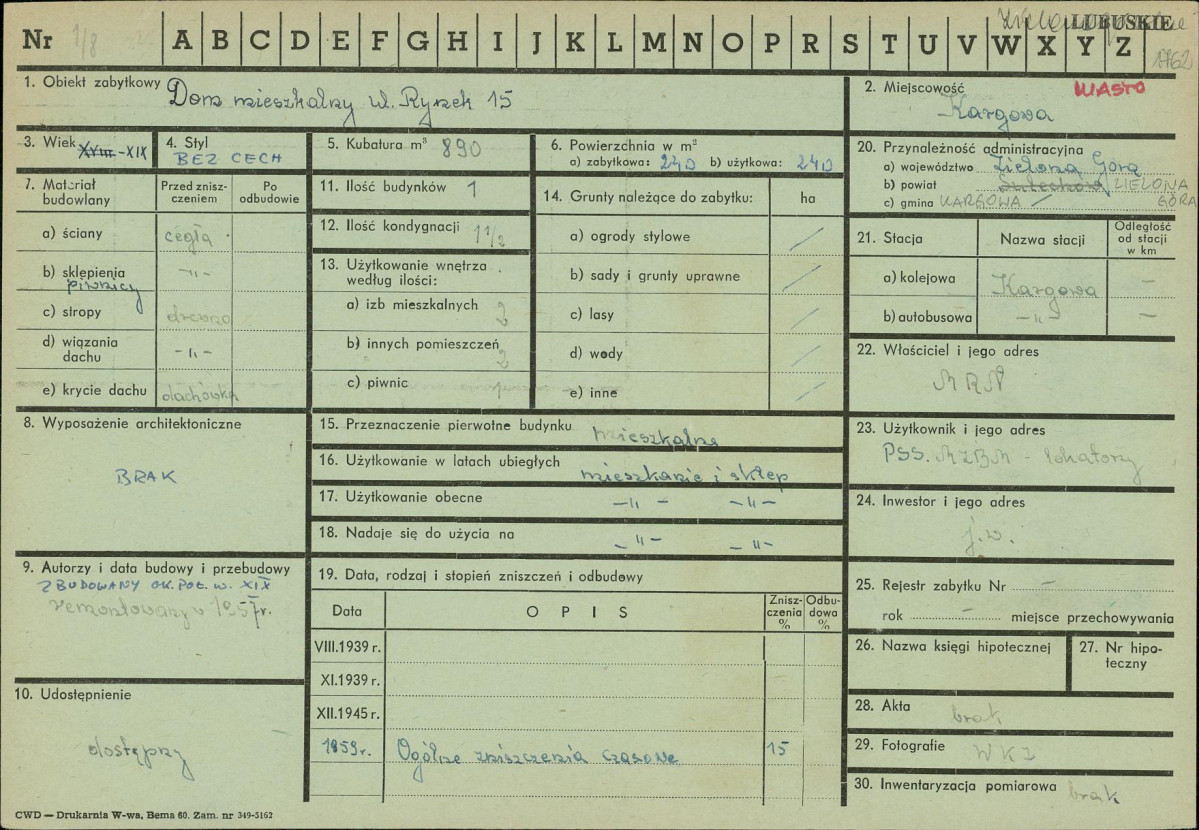 LUBUSKIE
Nr 1/8 A B C D E F G H I J K L M N O P R S T U V W X Y Z
1. Obiekt zabytkowy Dom mieszkalny ul. Rynek 15
2. Miejscowość MIASTO
Kargowa
3. Wiek XVIII-XIX
4. Styl
BEZ CECH
5. Kubatura m³ 890
6. Powierzchnia w m²
a) zabytkowa: 240 b) użytkowa: 240
20. Przynależność administracyjna
a) województwo Zielona Góra
b) powiat Sulechów ZIELONA
c) gmina KARGOWA GÓRA
7. Materiał budowlany
Przed zniszczeniem
Po odbudowie
a) ściany cegła
b) sklepienia -"-
piwnicy
c) stropy drewno
d) wiązania dachu -"-
e) krycie dachu dachówka
11. Ilość budynków 1
12. Ilość kondygnacji 1 1/2
13. Użytkowanie wnętrza
według ilości:
a) izb mieszkalnych 2
b) innych pomieszczeń 2
c) piwnic 1
14. Grunty należące do zabytku: ha
a) ogrody stylowe /
b) sady i grunty uprawne /
c) lasy /
d) wody /
e) inne /
21. Stacja Nazwa stacji Odległość od stacji w km
a) kolejowa Kargowa –
b) autobusowa -"- –
22. Właściciel i jego adres
MRN
8. Wyposażenie architektoniczne
BRAK
15. Przeznaczenie pierwotne budynku mieszkalne
16. Użytkowanie w latach ubiegłych mieszkanie i sklep
17. Użytkowanie obecne -"- -"-
18. Nadaje się do użycia na -"- -"-
23. Użytkownik i jego adres
PSS. MZBM - lokatorzy
24. Inwestor i jego adres
j.w.
9. Autorzy i data budowy i przebudowy
ZBUDOWANY OK. POŁ. W. XIX
remontowany w 1957r.
10. Udostępnienie
dostępny
19. Data, rodzaj i stopień zniszczeń i odbudowy
Data OPIS Zniszczenia % Odbudowa %
VIII.1939 r.
XI.1939 r.
XII.1945 r.
1959r. Ogólne zniszczenia czasowe 15
25. Rejestr zabytku Nr –
rok – miejsce przechowywania
26. Nazwa księgi hipotecznej
27. Nr hipoteczny
28. Akta
brak
29. Fotografie
WKZ
30. Inwentaryzacja pomiarowa brak
CWD — Drukarnia W-wa, Bema 60. Zam. nr 349-5162